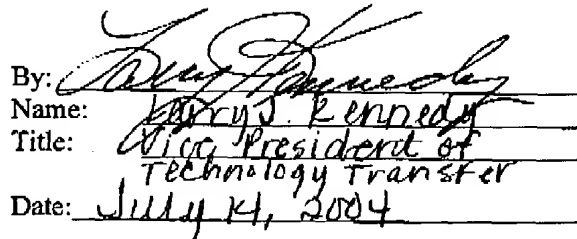 By: Larry J Kennedy
Name: Larry J. Kennedy
Title: Vice President of
Technology Transfer
Date: July 14, 2004